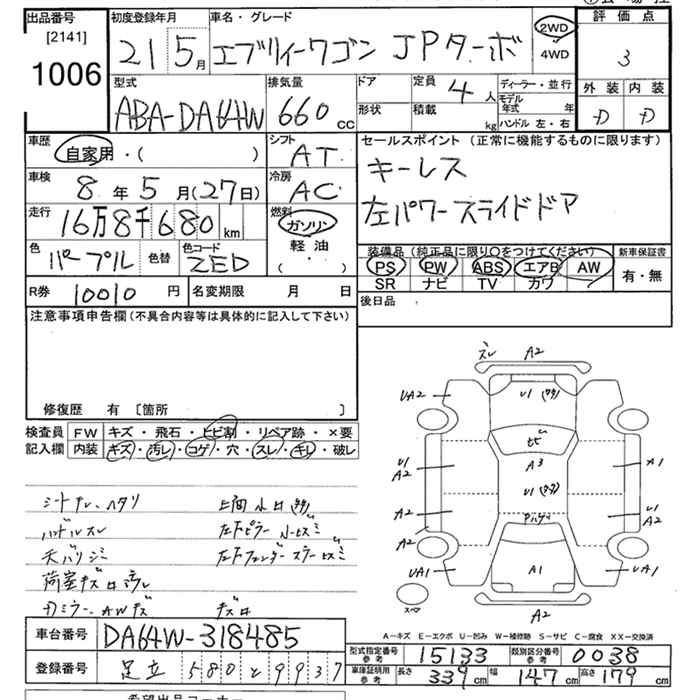 出品番号
[2141]
1006
初度登録年月
21 5月
車名・グレード
エブリイワゴン JPターボ
2WD
4WD
評価点
3
外装 内装
D D
型式
ABA-DA64W
排気量
660cc
ドア
形状
定員 4人
積載 kg
ディーラー・並行
モデル年式 年
ハンドル 左・右
車歴
自家用・( )
シフト
AT
セールスポイント(正常に機能するものに限ります)
キーレス
左パワースライドドア
車検
8年5月(27日)
冷房
AC
走行
16万8千680km
燃料
ガソリン
軽油
( ・ )
色
パープル
色替
色コード
ZED
装備品(純正品に限り○をつけてください)
PS PW ABS エアB AW
SR ナビ TV カワ
新車保証書
有・無
R券 10010円
名変期限 月 日
後日品
注意事項申告欄(不具合内容等は具体的に記入して下さい)
修復歴 有 〔箇所 〕
検査員記入欄
FW キズ・飛石・ヒビ割・リペア跡・×要
内装 キズ・汚レ・コゲ・穴・スレ・キレ・破レ
シートスレ、ヘタリ
ハンドルスレ
天バリシミ
ズレ A2
UA2
U1
A3
U1
A2
A1
U1
A2
A2
A2
UA1
A1
UA1
スペア
A2
A－キズ E－エクボ U－凹み W－補修跡 S－サビ C－腐食 XX－交換済
車台番号
DA64W-318485
登録番号
足立 580 と 9937
型式指定番号 参考
15133
類別区分番号 参考
0038
車庫証明用 参考
長さ 339cm
幅 147cm
高さ 179cm
希望出品コーナー